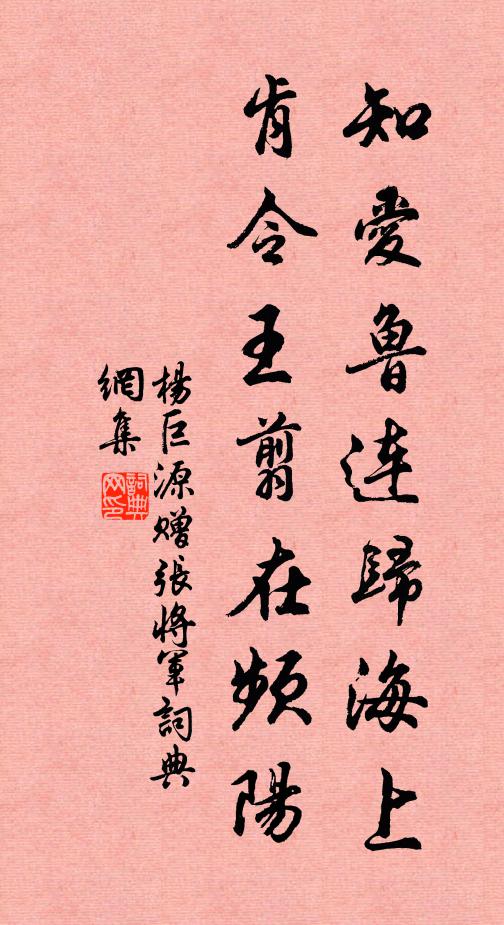 知愛魯連歸海上
肯令王翦在頻陽
楊巨源贈張將軍詞典
網集
詞典
网印